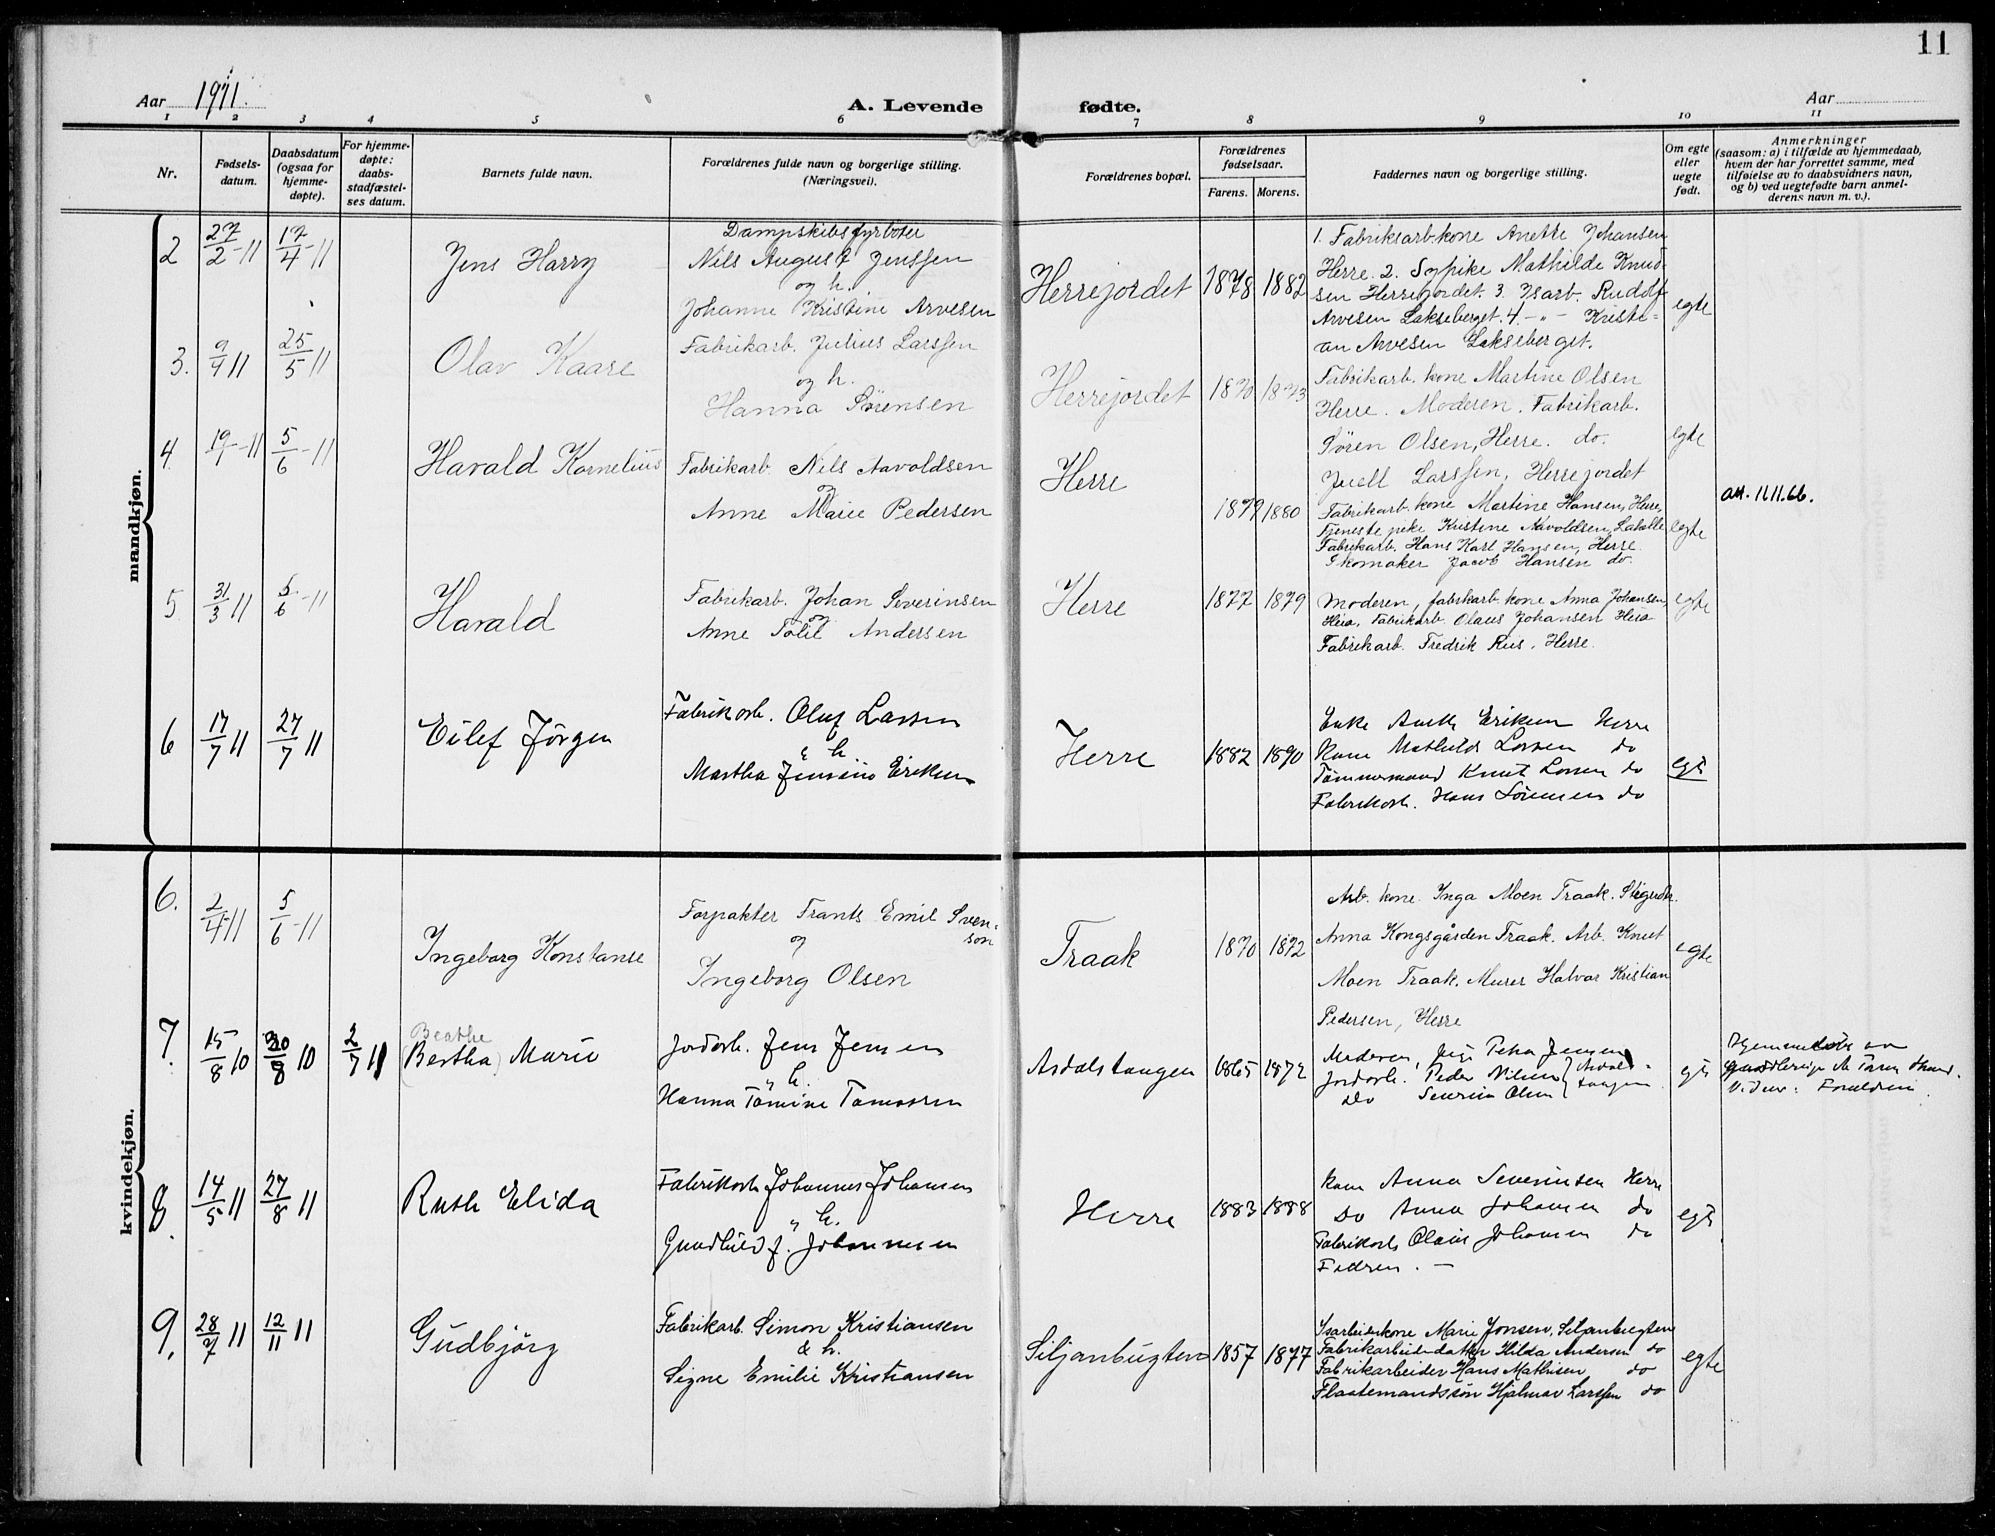 11
Aar 1911.
A. Levende fødte.
Aar
1 2 3 4 5 6 7 8 9 10 11
Nr.
Fødsels-
datum.
Daabsdatum
(ogsaa for
hjemme-
døpte).
For hjemme-
døpte:
daabs-
stadfæstel-
ses datum.
Barnets fulde navn.
Forældrenes fulde navn og borgerlige stilling.
(Næringsvei).
Forældrenes bopæl.
Forældrenes
fødselsaar.
Farens. Morens.
Faddernes navn og borgerlige stilling.
Om egte
eller
uegte
født.
Anmerkninger
(saasom: a) i tilfælde av hjemmedaab,
hvem der har forrettet samme, med
tilføielse av to daabsvidners navn,
og b) ved uegtefødte barn anmel-
derens navn m. v.).
mandkjøn.
2 27/2-11 17/4-11
Jens Harry
Dampskibsfyrbøter
Nils August Jenssen
og h.
Johanne Kristine Arvesen
Herrejordet 1878 1882
1. Fabriksarb.kone Anette Johansen
Herre. 2. Sypike Mathilde Knud-
sen Herrejordet. 3. Isarb. Rudolf
Arvesen Lakseberget. 4. -"- Kristi-
an Arvesen Lakseberget.
egte
3. 9/4 11 25/5-11
Olav Kaare
Fabrikarb. Julius Larssen
og h.
Hanna Sørensen
Herrejordet 1870 1873
Fabrikarb. kone Martine Olsen
Herre. Moderen. Fabrikarb.
Søren Olsen, Herre. do.
Juell Larssen, Herrejordet
egte
4 19/1-11 5/6-11
Harald Kornelius
Fabrikarb. Nils Aavoldsen
og
Anne Marie Pedersen
Herre
1879 1880
Fabrikarb. kone Martine Hansen, Herre,
Tjenestepike Kristine Aavoldsen,
Fabrikarb. Hans Karl Hansen, Herre.
Skomaker Jacob Hansen do.
egte
att. 11.11.66.
5 31/3 11 5/6-11
Harald
Fabrikarb. Johan Severinsen
og
Anne Tolil Andersen
Herre 1877 1879
Moderen, fabrikarb. kone Anna Johansen,
Heia, Fabrikarb. Olaus Johansen Heia
Fabrikarb. Fredrik Riis, Herre.
egte
6 17/7 11 27/7 11
Eilef Jörgen
Fabrikarb. Oluf Larsen
& h.
Martha Jensine Eriksen
Herre 1882 1890
Enke Eriksen Herre
Kone Mathilde Larsen do
Tømmermand Knut Larsen do
Fabrikarb. Hans Sörensen do
egte
kvindekjøn.
6. 2/4-11 5/6-11
Ingeborg Konstanse
Forpakter Frants Emil Sven-
son
og
Ingeborg Olsen
Traak 1870 1872
Arb. kone Inga Moen Traak.
Anna Kongsgården Traak. Arb. Knut
Moen Traak. Murer Halvor Kristian
Pedersen, Herre
egte
7. 15/8 10 10 2/7 11
Beathe
(Bertha) Marie
Jordarb. Jens Jensen
& h.
Hanna Tomine
Asdalstangen 1865 1872
Moderen, Petra Jensen
Jordarb. Peder Nilsen Asdals-
tangen
do Severin Olsen
egte
8. 14/5 11 27/8 11
Ruth Elida
Fabrikarb. Johannes Johansen
& h.
Gundhild J. Johannesen
Herre 1883 1888
Kone Anna Severinsen Herre
Do Anna Johansen do
Fabrikarb. Olaus Johansen do
Fadren. —
egte
9. 28/7 11 12/11 11
Gudbjörg
Fabrikarb. Simon Kristiansen
& h.
Signe Emilie Kristiansen
Siljanbugten 1857 1877
Isarbeiderkone Marie Jonsen, Siljanbugten
Fabrikarbeiderdatter Hilda Andersen do
Fabrikarbeider Hans Mathisen do
Flaatemandssøn Hjalmar Larssen do
egte